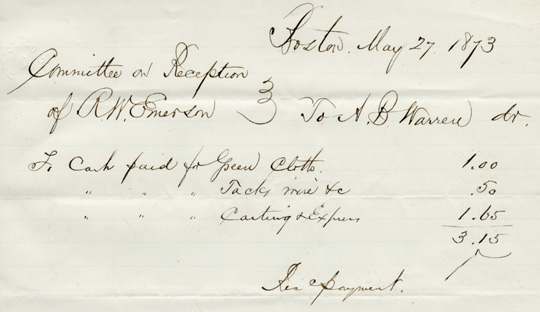 Boston. May 27 1873
Committee on Reception
of R.W. Emerson } To A. B Warren dr.
To Cash paid for Green Cloth. 1.00
" " " Tacks wire &c .50
" " " Carting & Express 1.65
3.15
Rec payment.